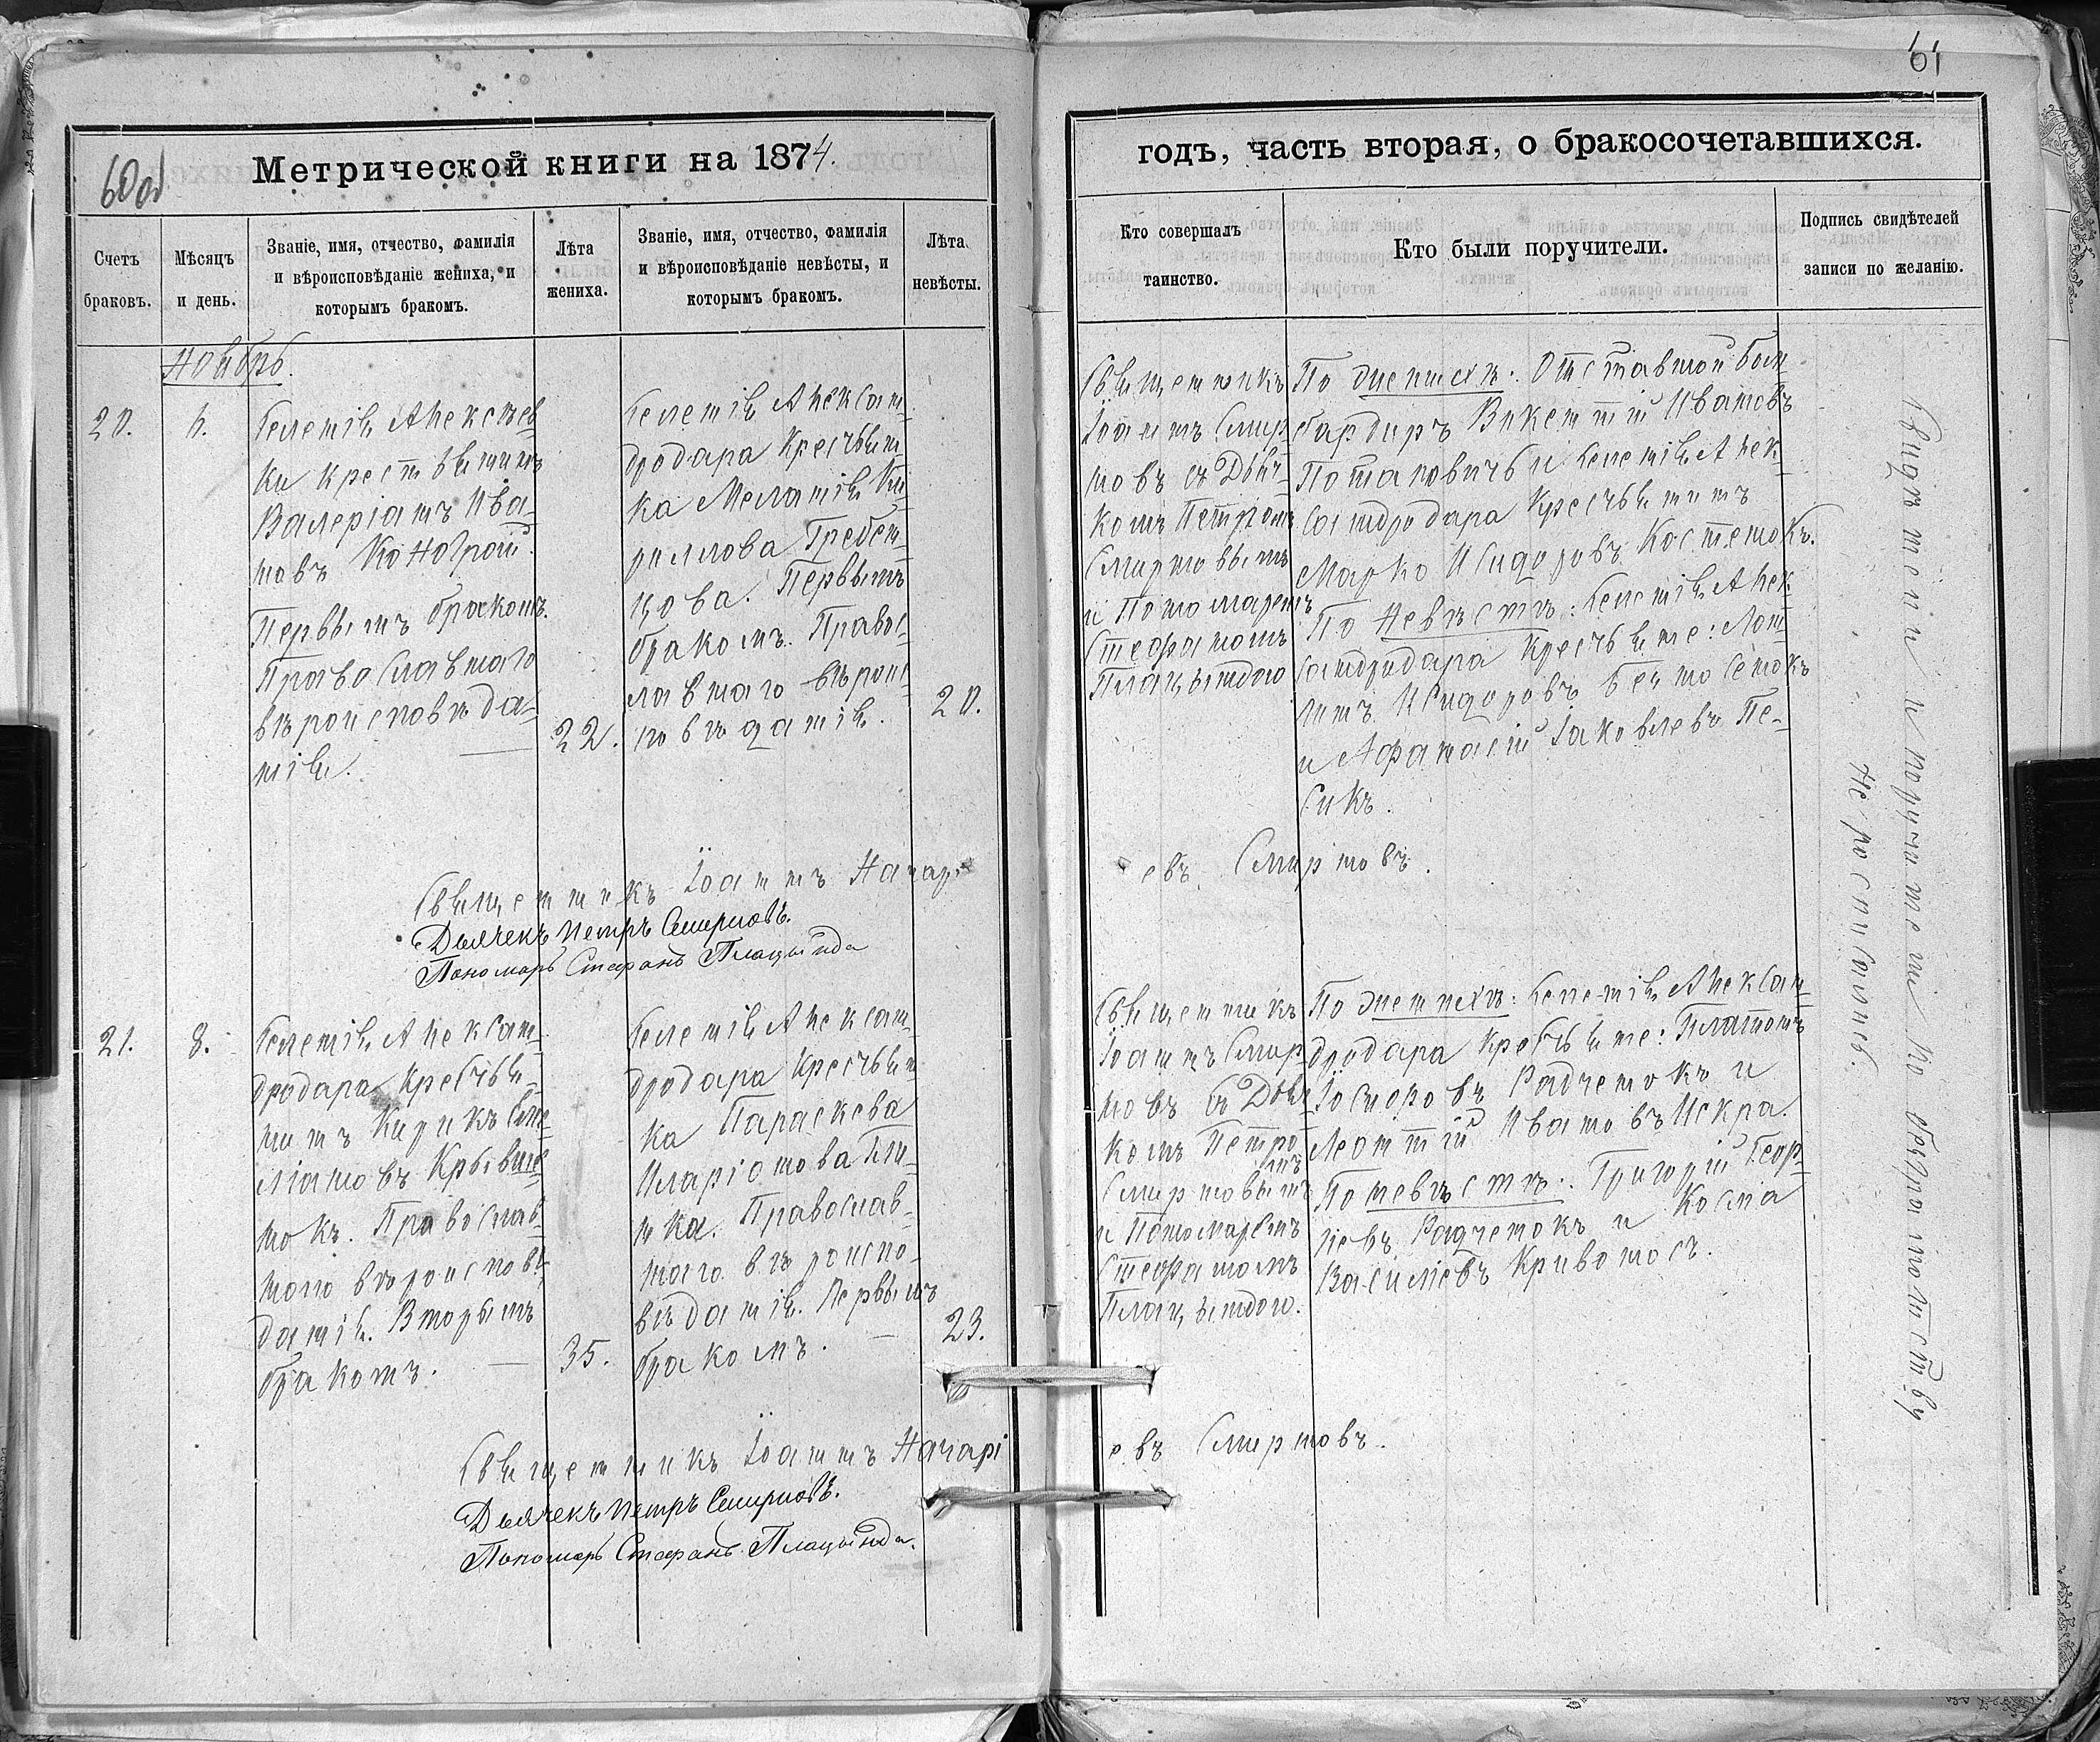 61
60об
Метрической книги на 1874.
годъ, часть вторая, о бракосочетавшихся.
Счетъ
браковъ.
Мѣсяцъ
и день.
Званіе, имя, отчество, фамилія
и вѣроисповѣданіе жениха, и
которымъ бракомъ.
Лѣта
жениха.
Званіе, имя, отчество, фамилія
и вѣроисповѣданіе невѣсты, и
которымъ бракомъ.
Лѣта
невѣсты.
Кто совершалъ
таинство.
Кто были поручители.
Подпись свидѣтелей
записи по желанію.
Ноябрь.
20.
6.
Селенія Алексѣев
ки крестьянинъ
Валеріанъ Ива-
новъ Коногрой.
Первымъ бракомъ.
Православнаго
вѣроисповѣда-
нія.
22.
Селенія Алексан-
дродара Крестьян
ка Меланія Ки-
риллова Гребен-
цова. Первымъ
бракомъ. Правос-
лавнаго вѣроис-
повѣданія.
20.
Священникъ
Іоаннъ Смир-
новъ съ Дья-
комъ Петромъ
Смирновымъ
и Пономаремъ
Стефаномъ
Плацындою
По женихѣ: Отставной бом
бардиръ Викентій Ивановъ
Потаповичъ и селенія Алек-
сандродара Крестьянинъ
Марко Исидоровъ Костенокъ.
По невѣстѣ: селенія Алек
сандродара Крестьяне: Лон-
гинъ Исидоровъ
и Афанасій Іаковлевъ Пе-
сикъ.
Священникъ Іоаннъ Назарі
евъ Смирновъ.
Дьячекъ Петръ Смирновъ.
Пономарь Стефанъ Плацында
21.
8.
Селенія Алексан-
дродара Крестья-
нинъ Кирикъ Еме-
ліановъ Крывше
нокъ. Православ-
наго вѣроисповѣ-
данія. Вторымъ
бракомъ.
35.
Селенія Алексан-
дродара Крестьян
ка Параскева
Иларіонова
Православ-
наго вѣроиспо-
вѣданія. Первымъ
бракомъ.
23.
Священникъ
Іоаннъ Смир
новъ съ Дья
комъ Петро
мъ
Смирновымъ
и Пономаремъ
Стефаномъ
Плацындою.
По женихѣ: селенія Алексан
дродара Крестьяне: Платонъ
Ѳедоровъ Радченокъ и
Леонтій Ивановъ Искра.
По невѣстѣ: Григорій Геор-
іевъ Радченокъ и Косма
Василіевъ Кривоносъ.
Священникъ Іоаннъ Назарі
евъ Смирновъ.
Дьячекъ Петръ Смирновъ.
Пономарь Стефанъ Плацында.
Свидѣтели и поручители по безграмотству
не росписались.